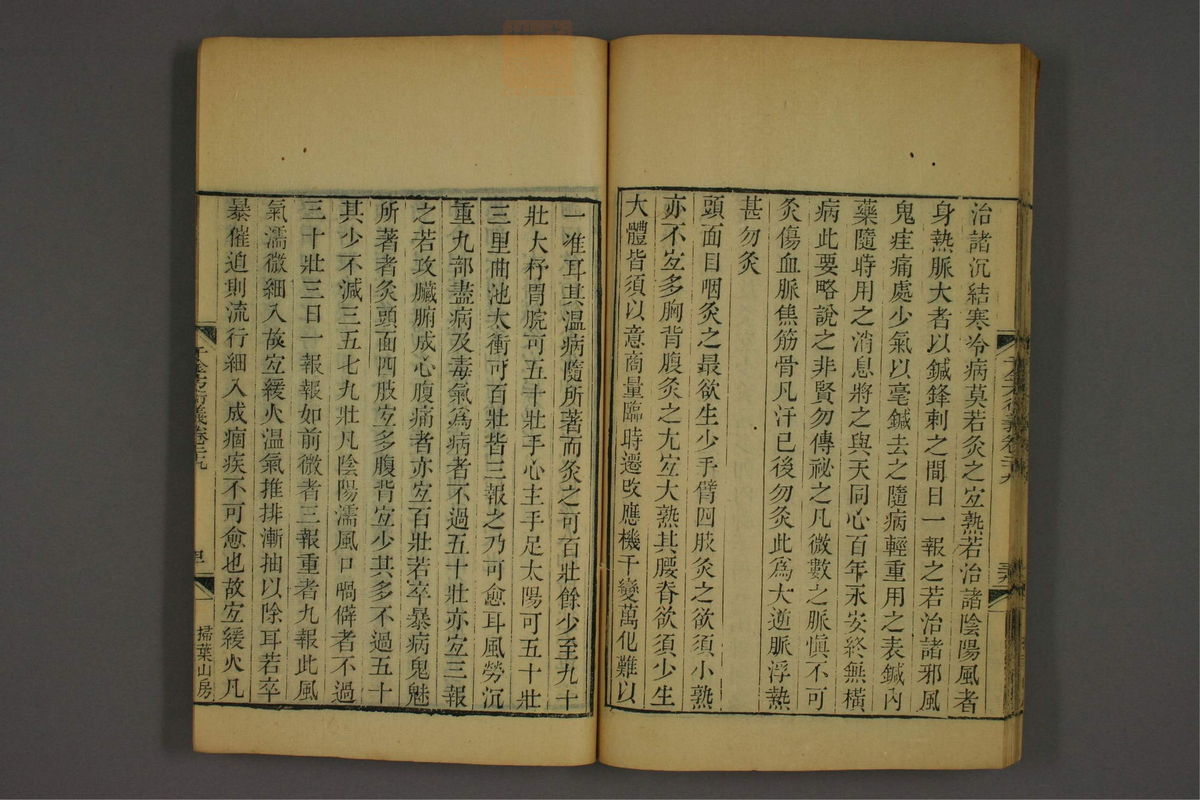 治諸沉結寒冷病莫若灸之宐熟若治諸陰陽風者
身熱脈大者以鍼鋒刺之間日一報之若治諸邪風
鬼疰痛處少氣以毫鍼去之隨病輕重用之表鍼內
藥隨時用之消息將之與天同心百年永安終無橫
病此要略說之非賢勿傳祕之凡微數之脈慎不可
灸傷血脈焦筋骨凡汗已後勿灸此為大逆脈浮熱
甚勿灸
頭面目咽灸之最欲生少手臂四肢灸之欲須小熟
亦不宐多胸背腹灸之尤宐大熟其腰脊欲須少生
大體皆須以意商量臨時遷改應機千變萬化難以
一准耳其溫病隨所著而灸之可百壯餘少至九十
壯大杼胃脘可五十壯手心主手足太陽可五十壯
三里曲池太衝可百壯皆三報之乃可愈耳風勞沉
重九部盡病及毒氣為病者不過五十壯亦宐三報
之若攻臟腑成心腹痛者亦宐百壯若卒暴病鬼魅
所著者灸頭面四肢宐多腹背宐少其多不過五十
其少不減三五七九壯凡陰陽濡風口喎僻者不過
三十壯三日一報報如前微者三報重者九報此風
氣濡微細入故宐緩火溫氣推排漸抽以除耳若卒
暴催迫則流行細入成痼疾不可愈也故宐緩火凡
千金方衍義卷二十九
掃葉山房